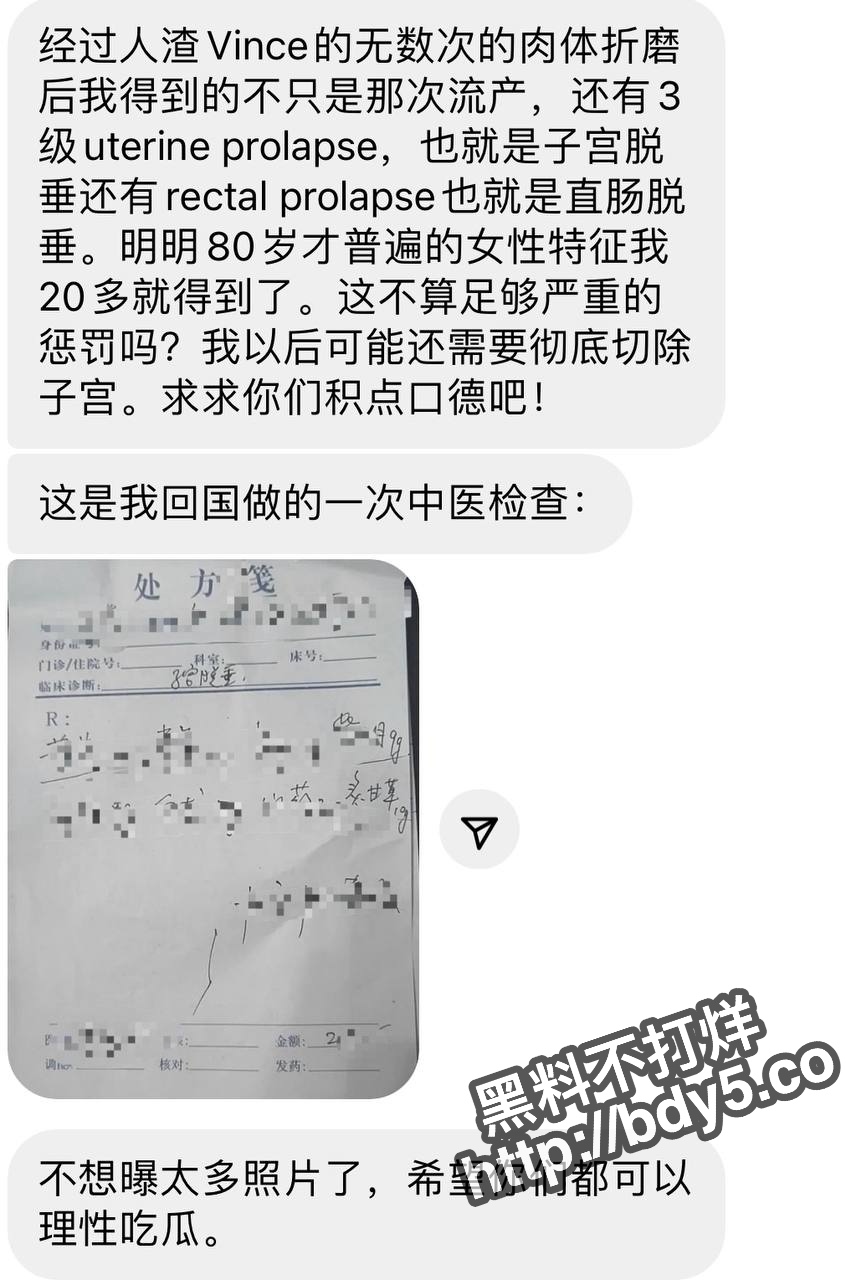 经过人渣Vince的无数次的肉体折磨
后我得到的不只是那次流产，还有3
级uterine prolapse，也就是子宫脱
垂还有rectal prolapse也就是直肠脱
垂。明明80岁才普遍的女性特征我
20多就得到了。这不算足够严重的
惩罚吗？我以后可能还需要彻底切除
子宫。求求你们积点口德吧！
这是我回国做的一次中医检查：
处方笺
身份证号
门诊/住院号： 科室： 床号：
临床诊断： 子宫脱垂
R：
9g
炙甘草
金额：2
核对： 发药：
黑料不打烊
http://bdy5.co
不想曝太多照片了，希望你们都可以
理性吃瓜。